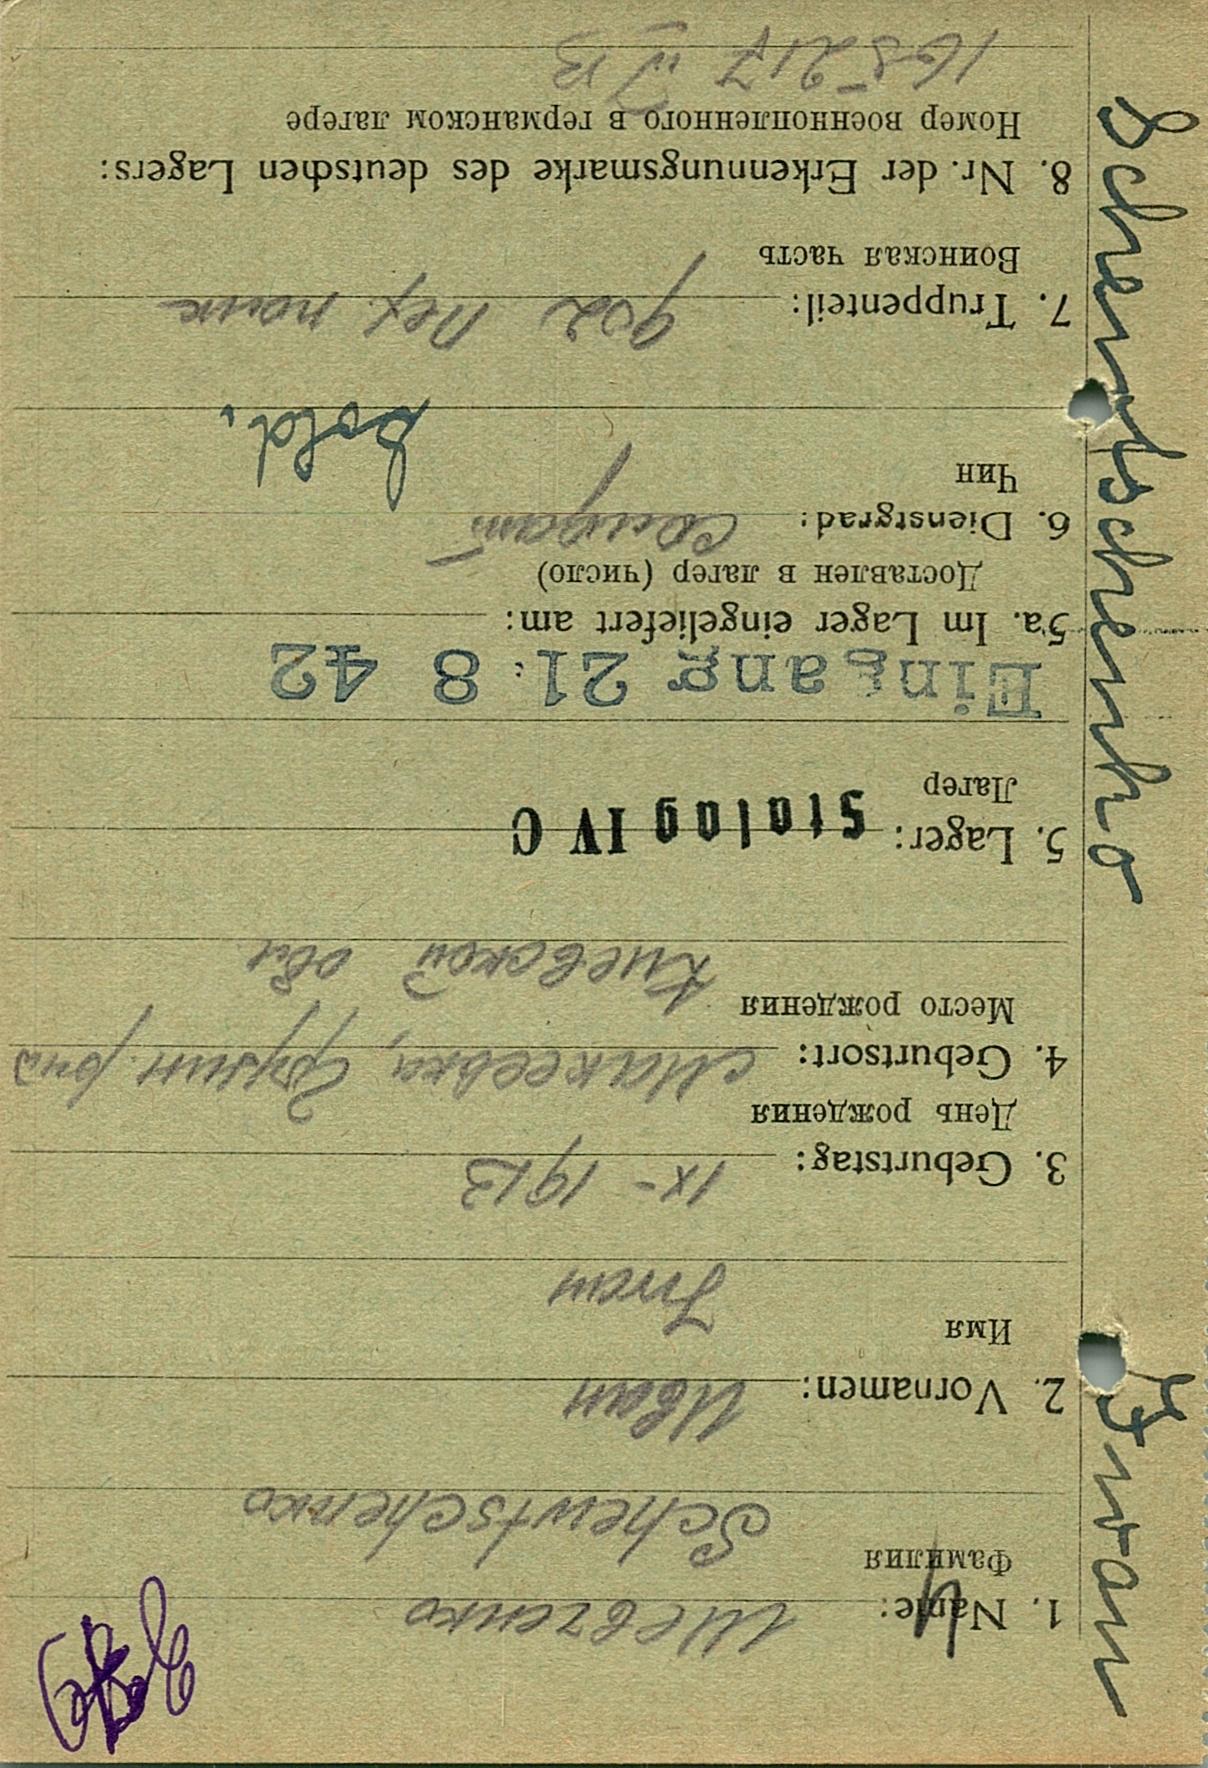 1. Name: Шевченко
Фамилия
Schewtschenko
2. Vornamen: Иван
Имя
Iwan
3. Geburtstag: IX - 1913
День рождения
4. Geburtsort: Макеевка,
Место рождения
Киевской обл
5. Lager: Stalag IV C
Лагер
Eingang 21. 8 42
5a. Im Lager eingeliefert am:
Доставлен в лагер (число)
6. Dienstgrad: солдат
Чин
Sold.
7. Truppenteil: 902 пех. полк
Воинская часть
8. Nr. der Erkennungsmarke des deutschen Lagers:
Номер военнопленного в германском лагере
IV B
Schewtschenko
Iwan